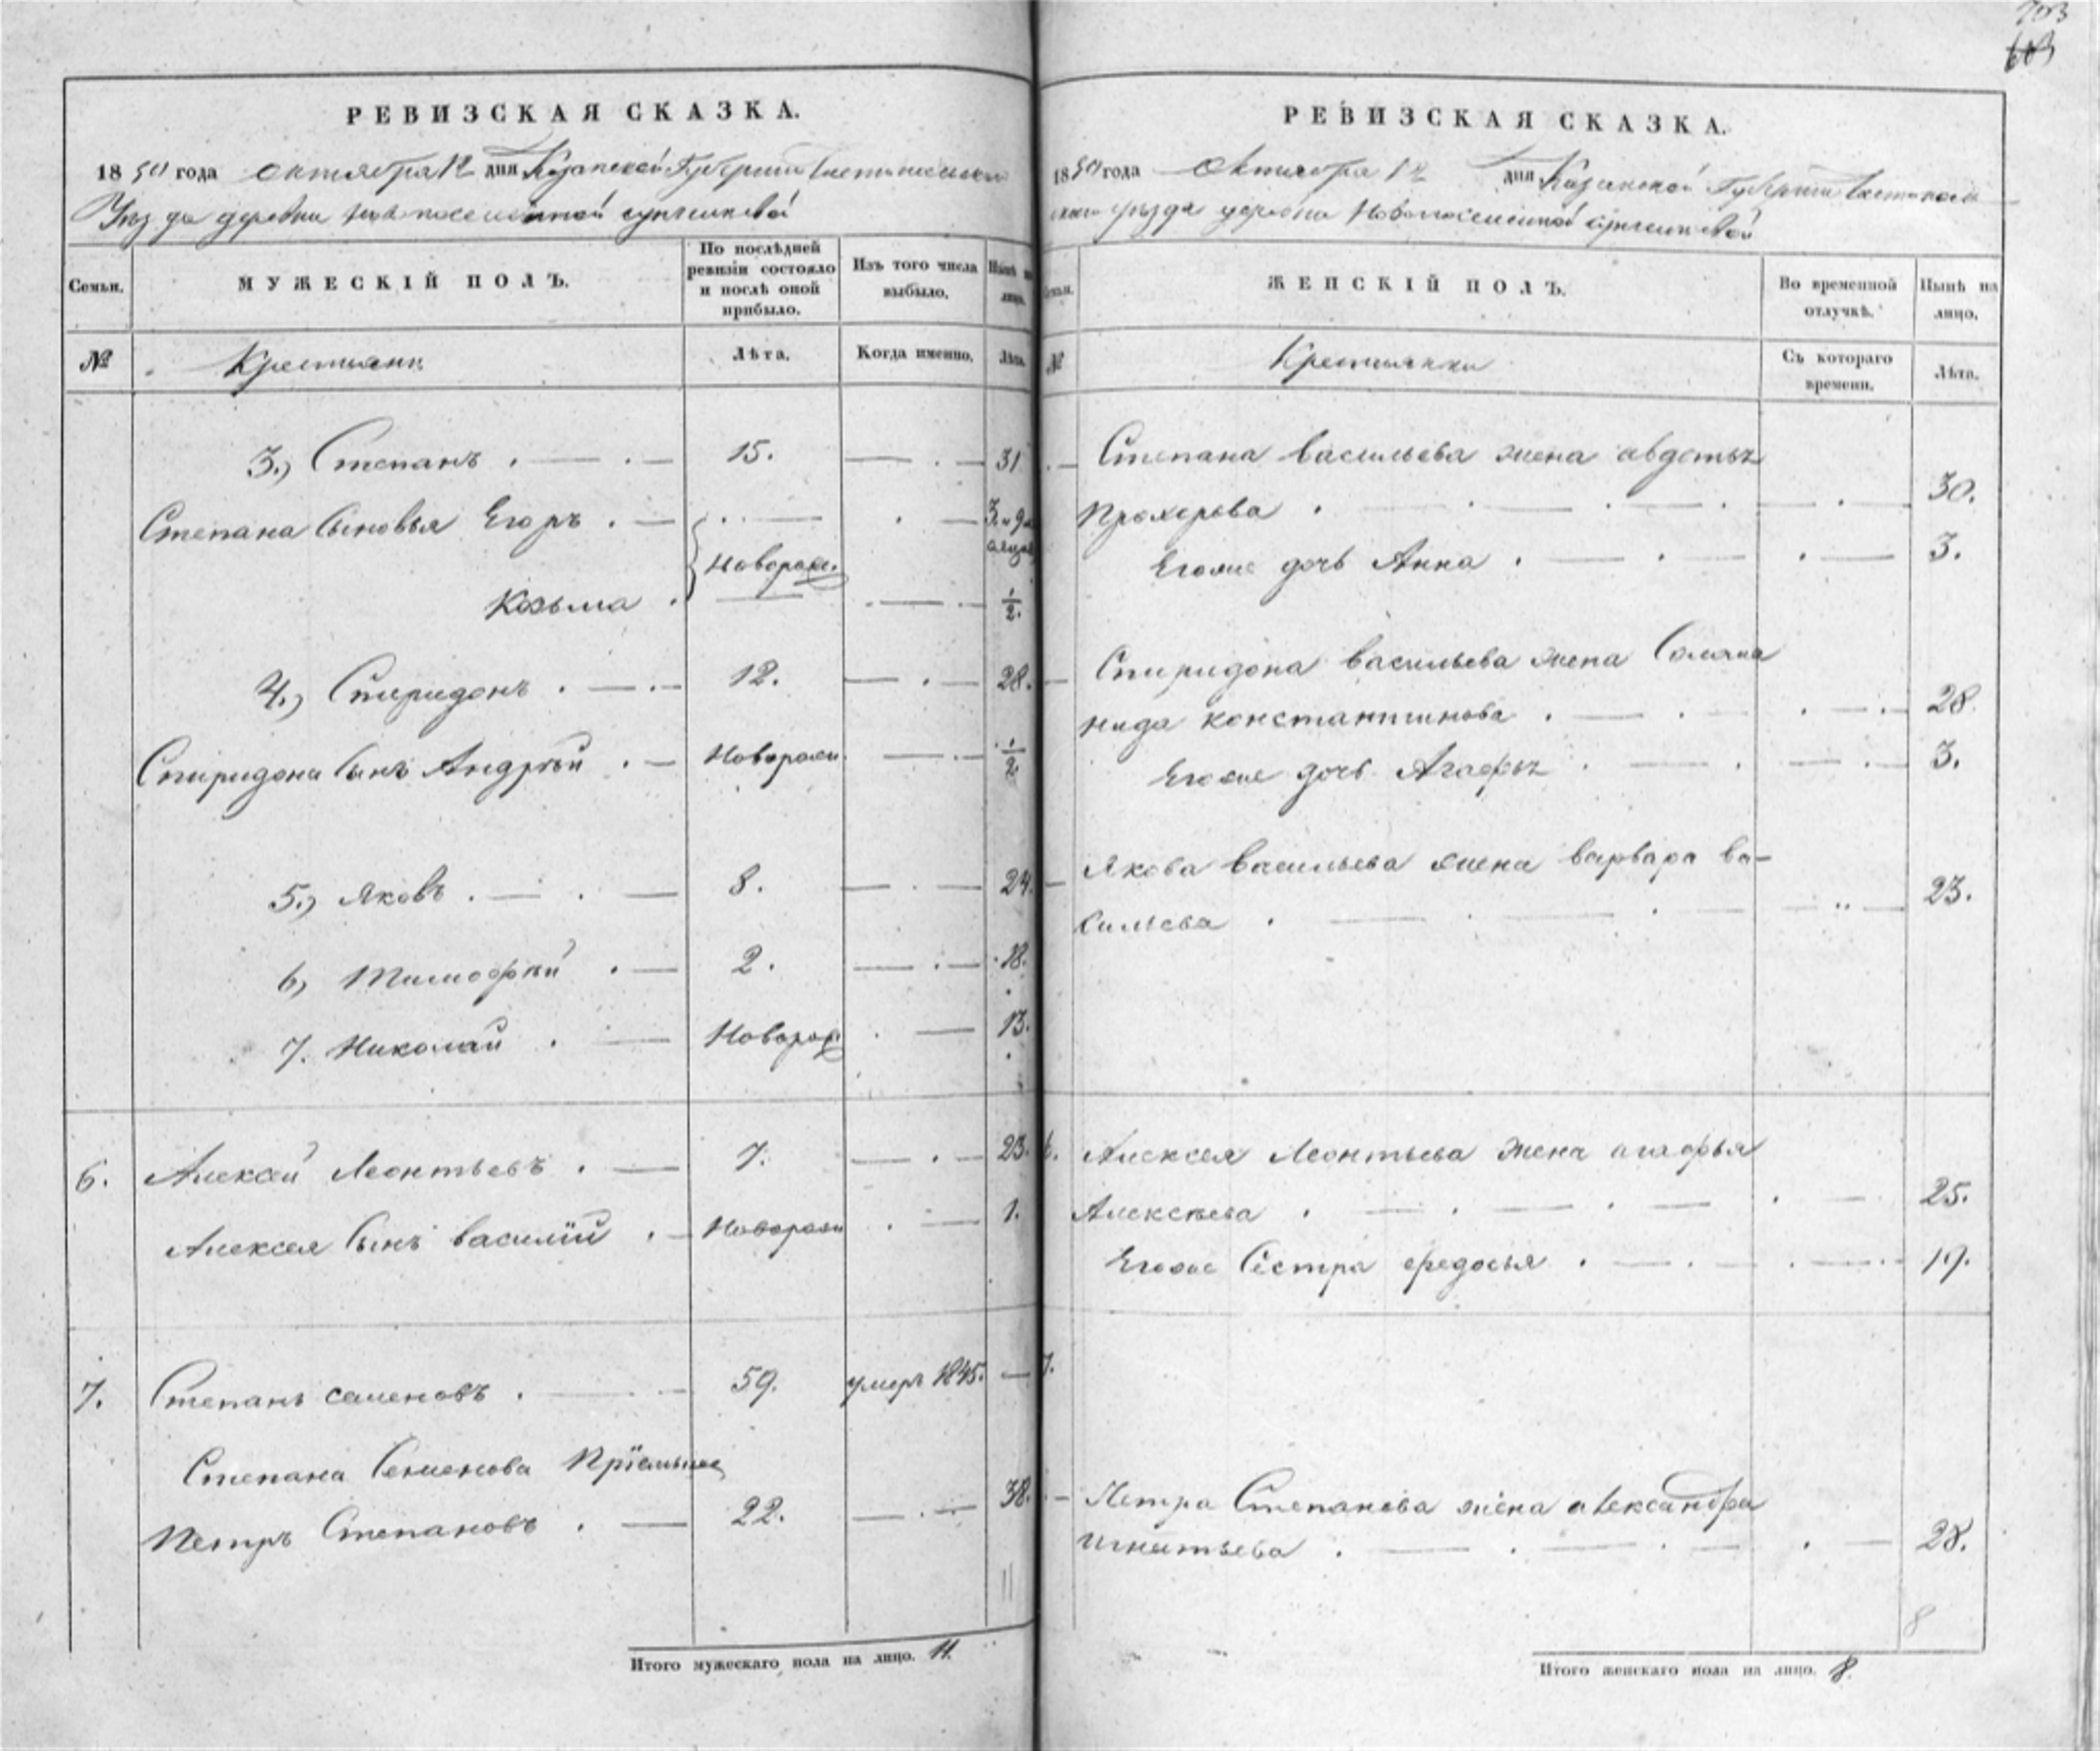 703
603
РЕВИЗСКАЯ СКАЗКА.
1850 года октября 12 дня Казанской Губернии Чистопольскаго
Уезда деревни новопоселенной
Семьи. МУЖЕСКІЙ ПОЛЪ. По послѣдней ревизіи состояло и послѣ оной прибыло. Изъ того числа выбыло. Нынѣ на лицо.
№ Крестьяне Лѣта. Когда именно. Лѣта.
3.) Степанъ 15. 31
Степана Сыновья Егоръ 3. и 9 м
Новорож.
Козьма 1/2.
4.) Спиридонъ 12. 28.
Спиридона Сынъ Андрѣй Новорожд. 1/2
5.) Яковъ 8. 24.
6) Тимофѣй 2. 18.
7. Николай Новорож 13.
6. Алексей Леонтьевъ 7. 23.
Алексея Сынъ василій Новорожд 1.
7. Степанъ семеновъ 59. умеръ 1845.
Степана Семенова Пріемышъ
Петръ Степановъ 22. 38.
11
Итого мужескаго пола на лицо. 11.
РЕВИЗСКАЯ СКАЗКА.
1850 года Октября 12 дня Казанской Губерніи Чистополь
скаго уезда деревни Новопоселенной
Семьи. ЖЕНСКІЙ ПОЛЪ. Во временной отлучкѣ. Нынѣ на лицо.
№ Крестьянки Съ котораго времени. Лѣта.
Степана васильева жена авдотья
Прохорова 30.
Егоже дочь Анна 3.
Спиридона васильева жена Соломо
нида константинова 28.
Егоже дочь Агафья 3.
Якова васильева жена варвара ва-
сильева 23.
6. Алексея Леонтьева жена агафья
Алексеева 25.
Егоже Сестра федосья 19.
7.
Петра Степанова жена александра
игнатьева 28.
8
Итого женскаго пола на лицо. 8.